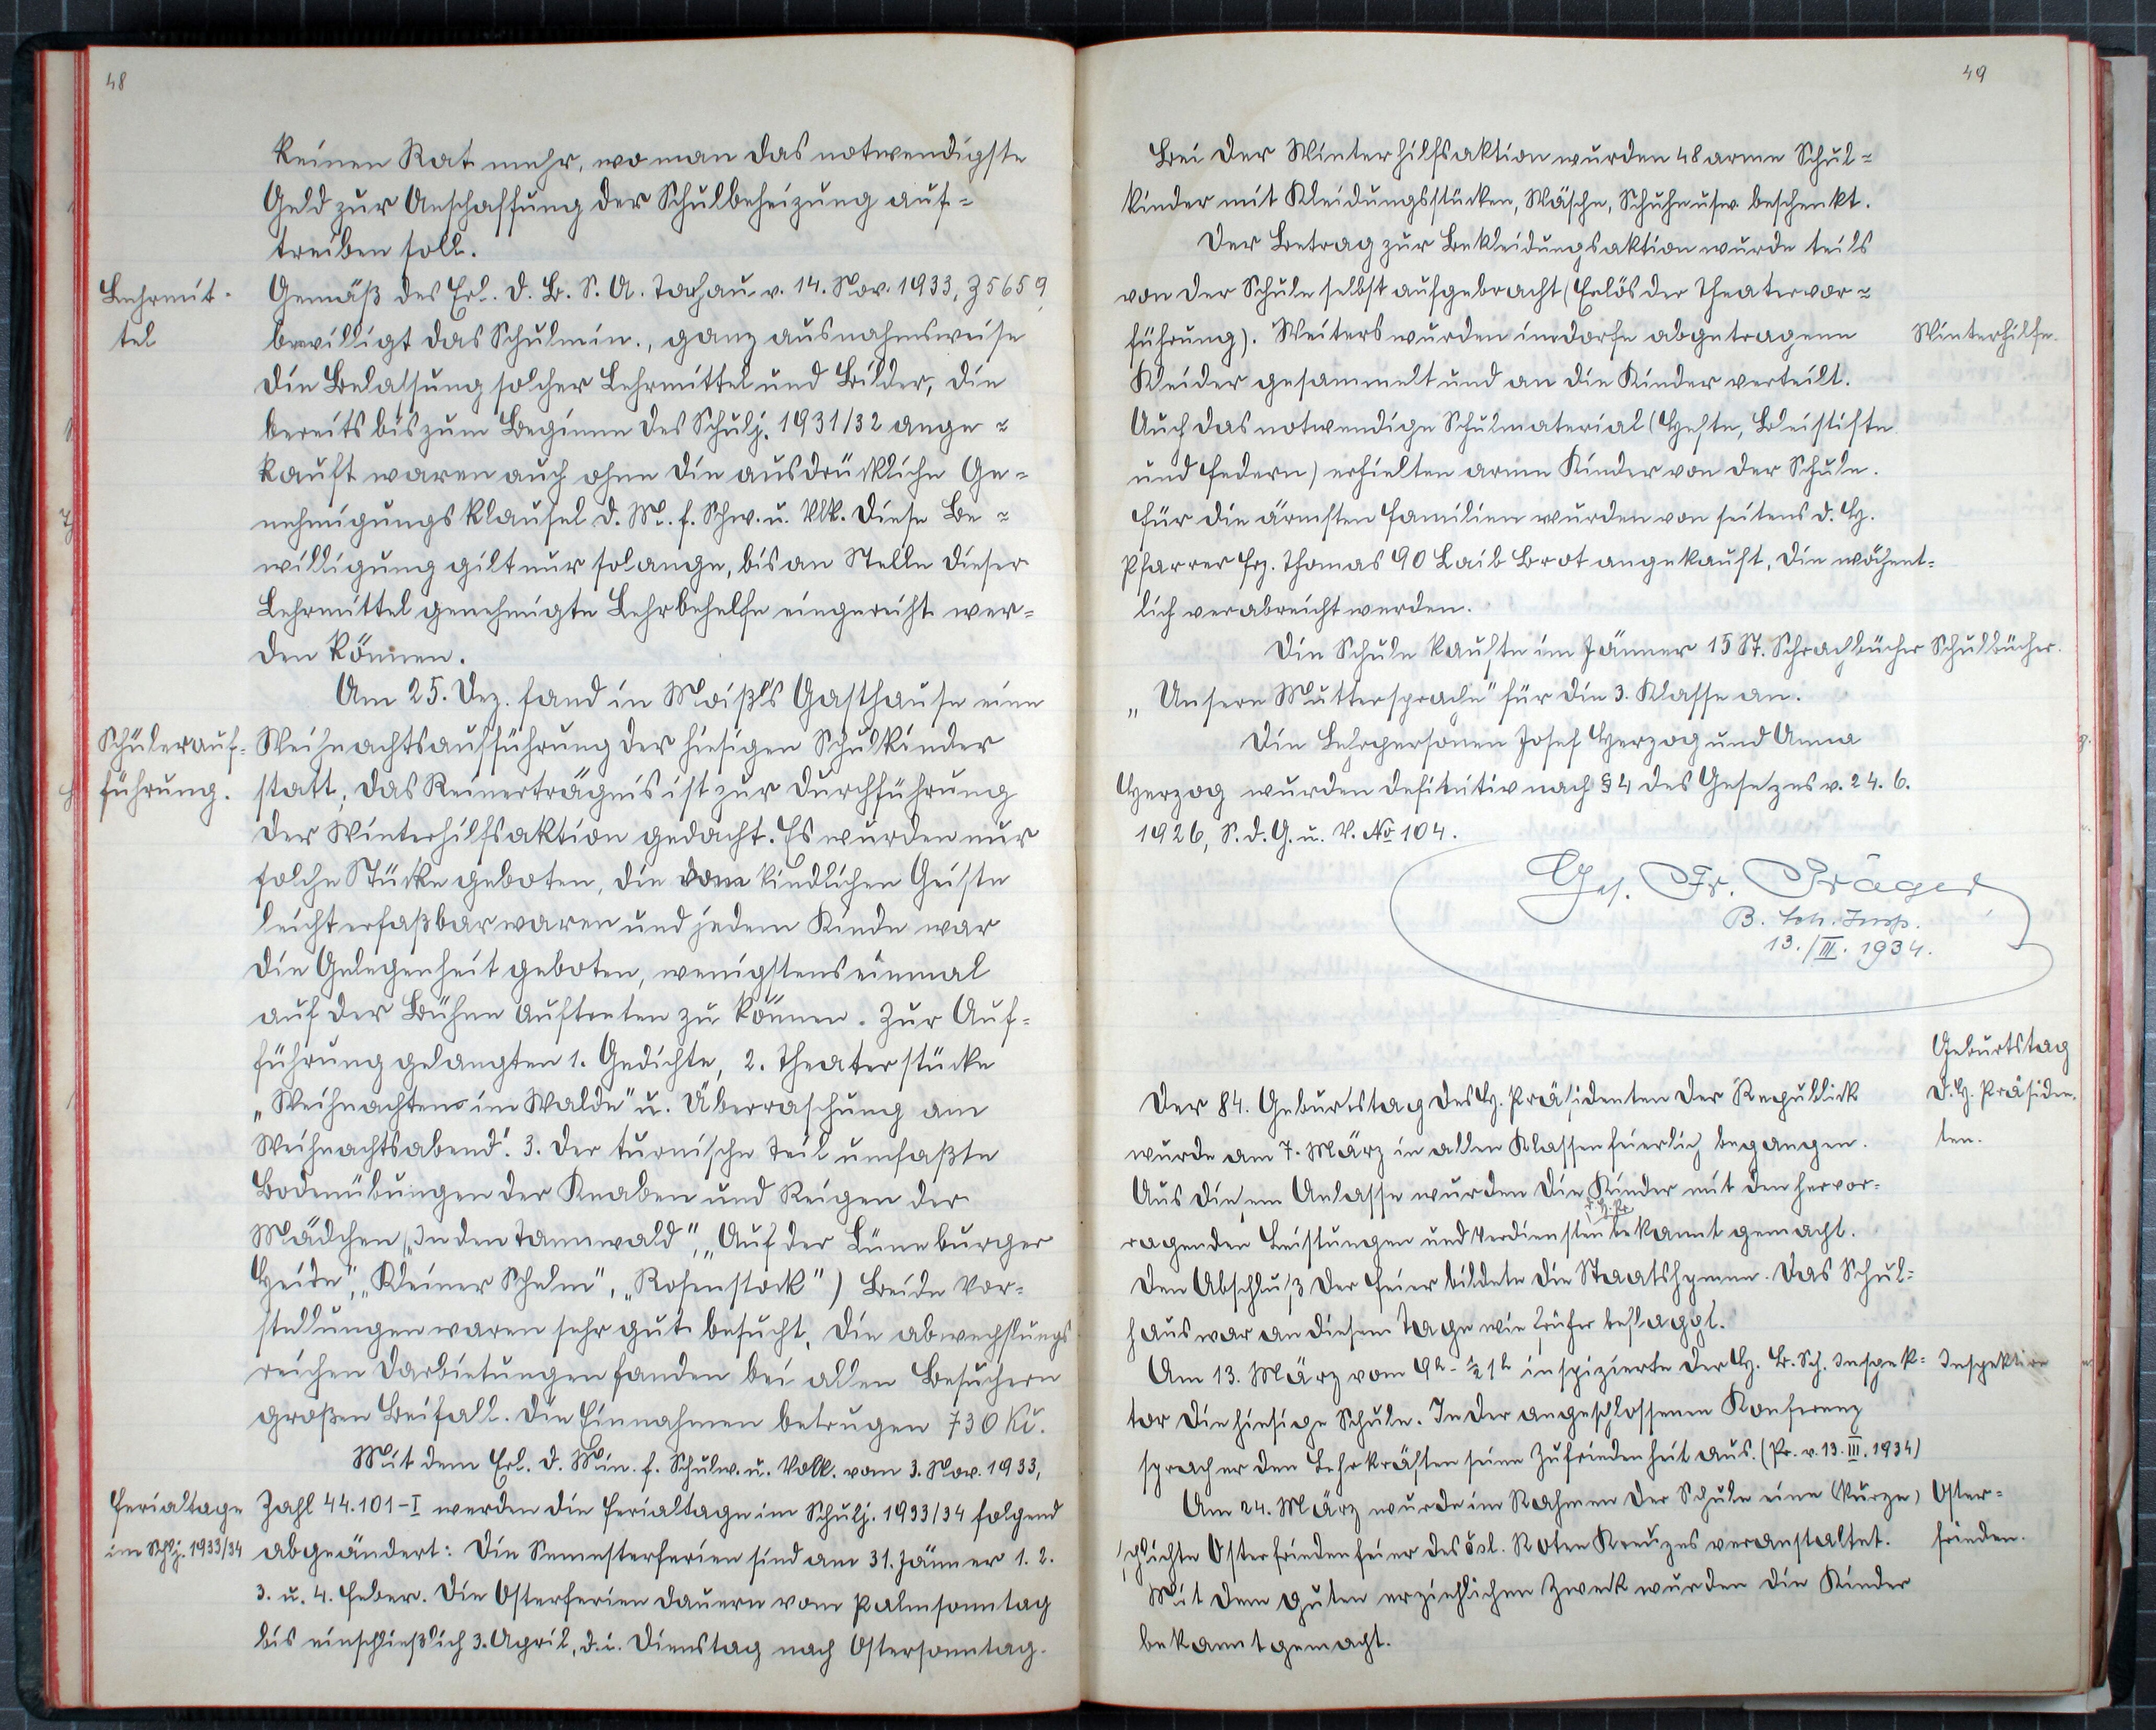 48
keinen Rat mehr, wo man das notwendigste
Geld zur Anschaffung der Schulbeheizung auf=
treiben soll.
Lehrmit-
tel
Gemäß des Erl. d. B. S. A. Tachau v. 14. Nov. 1933, Z 5659,
bewilligt das Schulmin., ganz ausnahmsweise
die Belassung solcher Lehrmittel und Bilder, die
bereits bis zum Beginne des Schulj. 1931/32 ange=
kauft waren auch ohne die ausdrückliche Ge=
nehmigungsklausel d. M. f. Schw. u. Vlk. Diese Be=
willigung gilt nur solange, bis an Stelle dieser
Lehrmittel genehmigte Lehrbehelfe eingereiht wer=
den können.
Am 25. Dez. fand in Moißl's Gasthause eine
Schülerauf=
führung.
Weihnachtsaufführung der hiesigen Schulkinder
statt, das Reinerträgnis ist zur Durchführung
der Winterhilfsaktion gedacht. Es wurden nur
solche Stücke geboten, die vom kindlichen Geiste
leicht erfaßbar waren und jedem Kinde war
die Gelegenheit geboten, wenigstens einmal
auf der Bühne auftreten zu können. Zur Auf=
führung gelangten 1. Gedichte, 2. Theaterstücke
„Weihnachten im Walde" u. Überraschung am
Weihnachtsabend". 3. Der turnische Teil umfaßte
Bodenübungen der Knaben und Reigen der
Mädchen („In den Tannwald", „Auf der Lüneburger
Heide", „Kleiner Schelm", „Rosenstock") Beide Vor=
stellungen waren sehr gut besucht, die abwechslungs
reichen Darbietungen fanden bei allen Besuchern
großen Beifall. Die Einnahmen betrugen 730 Kč.
Mit dem Erl. d. Min. f. Schulw. u. Volk. vom 3. Nov. 1933,
Ferialtage
im Schlj. 1933/34
Zahl 44.101-I werden die Ferialtage im Schulj. 1933/34 folgend
abgeändert: Die Semesterferien sind am 31. Jänner 1. 2.
3. u. 4. Feber. Die Osterferien dauern vom Palmsonntag
bis einschließlich 3. April, d. i. Dienstag nach Ostersonntag.
49
Bei der Winterhilfsaktion wurden 48 arme Schul=
kinder mit Kleidungsstücken, Wäsche, Schuhe usw. beschenkt.
Der Betrag zur Bekleidungsaktion wurde teils
von der Schule selbst aufgebracht (Erlös der Theatervor=
führung). Weiters wurden im Dorfe abgetragene
Winterhilfe.
Kleider gesammelt und an die Kinder verteilt.
Auch das notwendige Schulmaterial (Hefte, Bleistifte
und Federn) erhielten arme Kinder von der Schule.
Für die ärmsten Familien wurden von seitens d. H.
Pfarrer Frz. Thomas 90 Laib Brot angekauft, die wöchent=
lich verabreicht werden.
Die Schule kaufte im Jänner 15 St. Schrachbücher
Schulbücher.
„Unsere Muttersprache" für die 3. Klasse an.
Die Lehrpersonen Josef Herzog und Anna
Herzog wurden definitiv nach § 4 des Gesetzes v. 24. 6.
1926, S. d. G. u. V. No 104.
Ges. Fr. Präger
B. Sch. Insp.
13./III. 1934.
Geburtstag
d. H. Präsiden-
ten.
Der 84. Geburtstag des H. Präsidenten der Republick
wurde am 7. März in allen Klassen feierlich begangen.
Aus diesem Anlasse wurden die Kinder mit den hervor=
ragenden Leistungen und Verdiensten bekannt gemacht.
Den Abschluß der Feier bildete die Staatshymne. Das Schul=
haus war an diesem Tage wie früher beflaggt.
Am 13. März vom 9h - ½ 1h inspizierte der H. B. Sch. Inspek=
Inspektion
tor die hiesige Schule. In der angeschlossenen Konferenz
sprach er den Lehrkräften seine Zufriedenheit aus. (Pr. v. 13. III. 1934)
Am 24. März wurde im Rahmen der Schule eine (kurze)
Oster=
frieden.
schlichte Osterfriedenfeier des čsl. Roten Kreuzes veranstaltet.
Mit dem guten erziehlichen Zweck wurden die Kinder
bekannt gemacht.